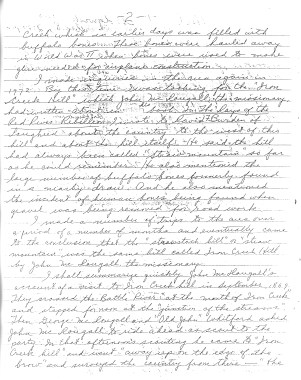 -2-
Creek which in earlier days was filled with
buffalo bones. These bones were hauled away
in World War II when bones were used to make
glue needed for airplane construction.
I made inquiries in this area again in
1972. By that time I was looking for the "Iron
Creek hill" which John McDougall, the missionary
had
Red River Rebellion. I wrote to David Burden of
Lougheed about the country to the west of this
hill and about the hill itself. He said the hill
had always been called "straw mountain" so far
as he could remember. He also mentioned the
large number of buffalo bones formerly found
in a nearby draw. And he also mentioned
the incident of human bones being found when
gravel was being removed for road work.
I made a number of trips to the area over
a period of a number of months and eventually came
to the conclusion that the "strawstack hill" or "straw
mountain" was the same hill called Iron Creek Hill
by John McDougall the missionary.
I shall summarize quickly John McDougall's
account of a visit to Iron Creek hill in September 1869.
They crossed the Battle River "at the mouth of Iron Creek
and stopped for noon at the junction of the streams."
Then George McDougall and "Old John" Whitford asked
John McDougall to ride ahead as scout to the
party. In that afternoon's scouting he came to "Iron
Creek hill" and went "away up to the edge of the
brow" and surveyed the country from there — "the